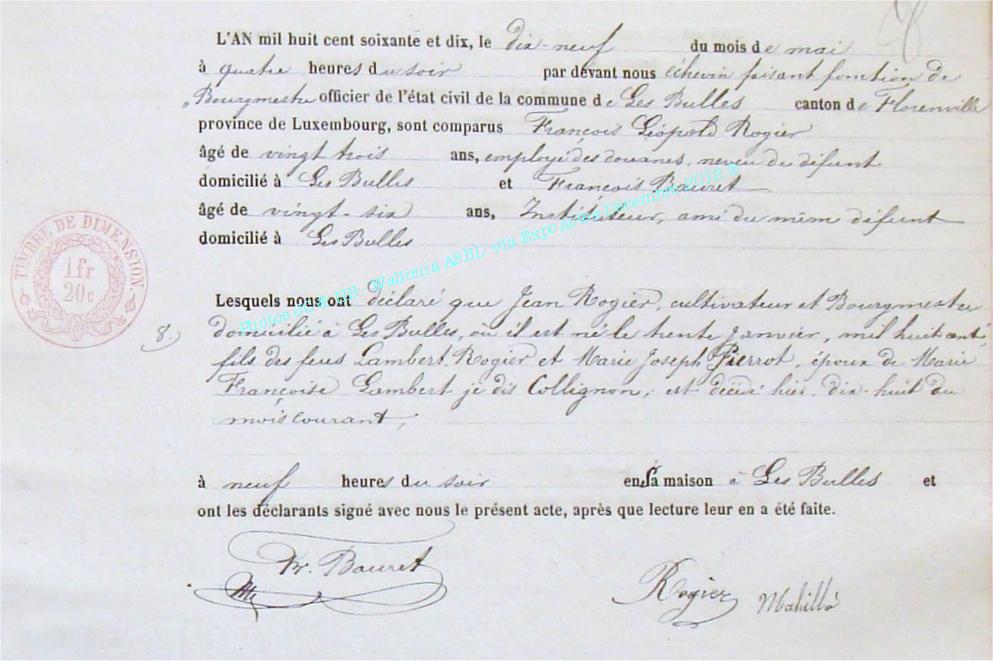 L'AN mil huit cent soixante et dix, le dix-neuf du mois de mai
à quatre heures du soir par devant nous échevin faisant fonction de
Bourgmestre officier de l'état civil de la commune de Les Bulles canton de Florenville
province de Luxembourg, sont comparus François Léopold Rogier
âgé de vingt trois ans, employé des douanes, neveu du défunt
domicilié à Les Bulles et François Bauret
âgé de vingt-six ans, Instituteur, ami du même défunt
domicilié à Les Bulles
TIMBRE DE DIMENSION
1 fr
20 c
Lesquels nous ont déclaré que Jean Rogier, cultivateur et Bourgmestre
8.) domicilié à Les Bulles, où il est né le trente Janvier, mil huit cent,
fils des feus Lambert Rogier et Marie Joseph Pierrot, époux de Marie
Françoise Lambert je dis Collignon, est décédé hier, dix-huit du
mois courant,
à neuf heures du soir en sa maison à Les Bulles et
ont les déclarants signé avec nous le présent acte, après que lecture leur en a été faite.
Fr. Bauret
Rogier Mahillé
Wallonia ASBL- via ExpoActes Décembre 2012